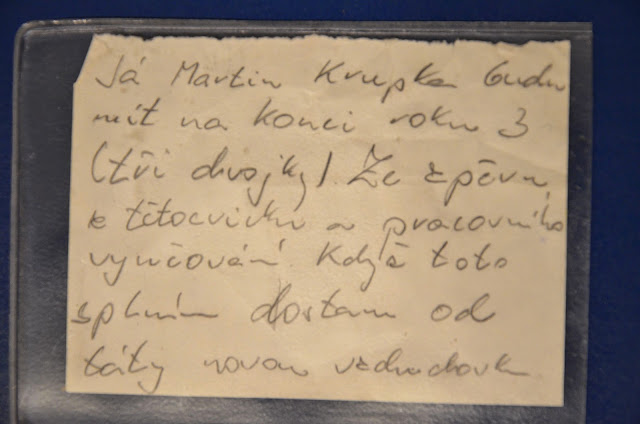 Já Martin Krupka budu
mít na konci roku 3
(tři dvojky) Ze zpěvu,
z tělocviku a pracovního
vyučování. Když toto
splním dostanu od
táty novou vzduchovku